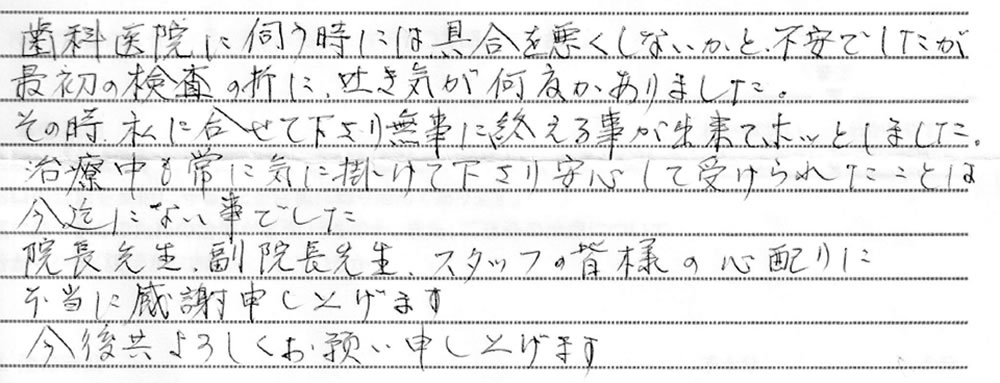 歯科医院に伺う時には具合を悪くしないかと、不安でしたが
最初の検査の折に、吐き気が何度かありました。
その時、私に合せて下さり無事に終える事が出来てホッとしました。
治療中も常に気に掛けて下さり安心して受けられたことは
今迄にない事でした
院長先生、副院長先生、スタッフの皆様の心配りに
本当に感謝申し上げます
今後共よろしくお願い申し上げます